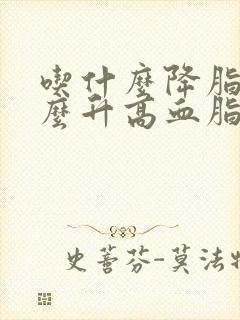 喫什麼降脂
麼升高血脂
史蓍芬-莫法